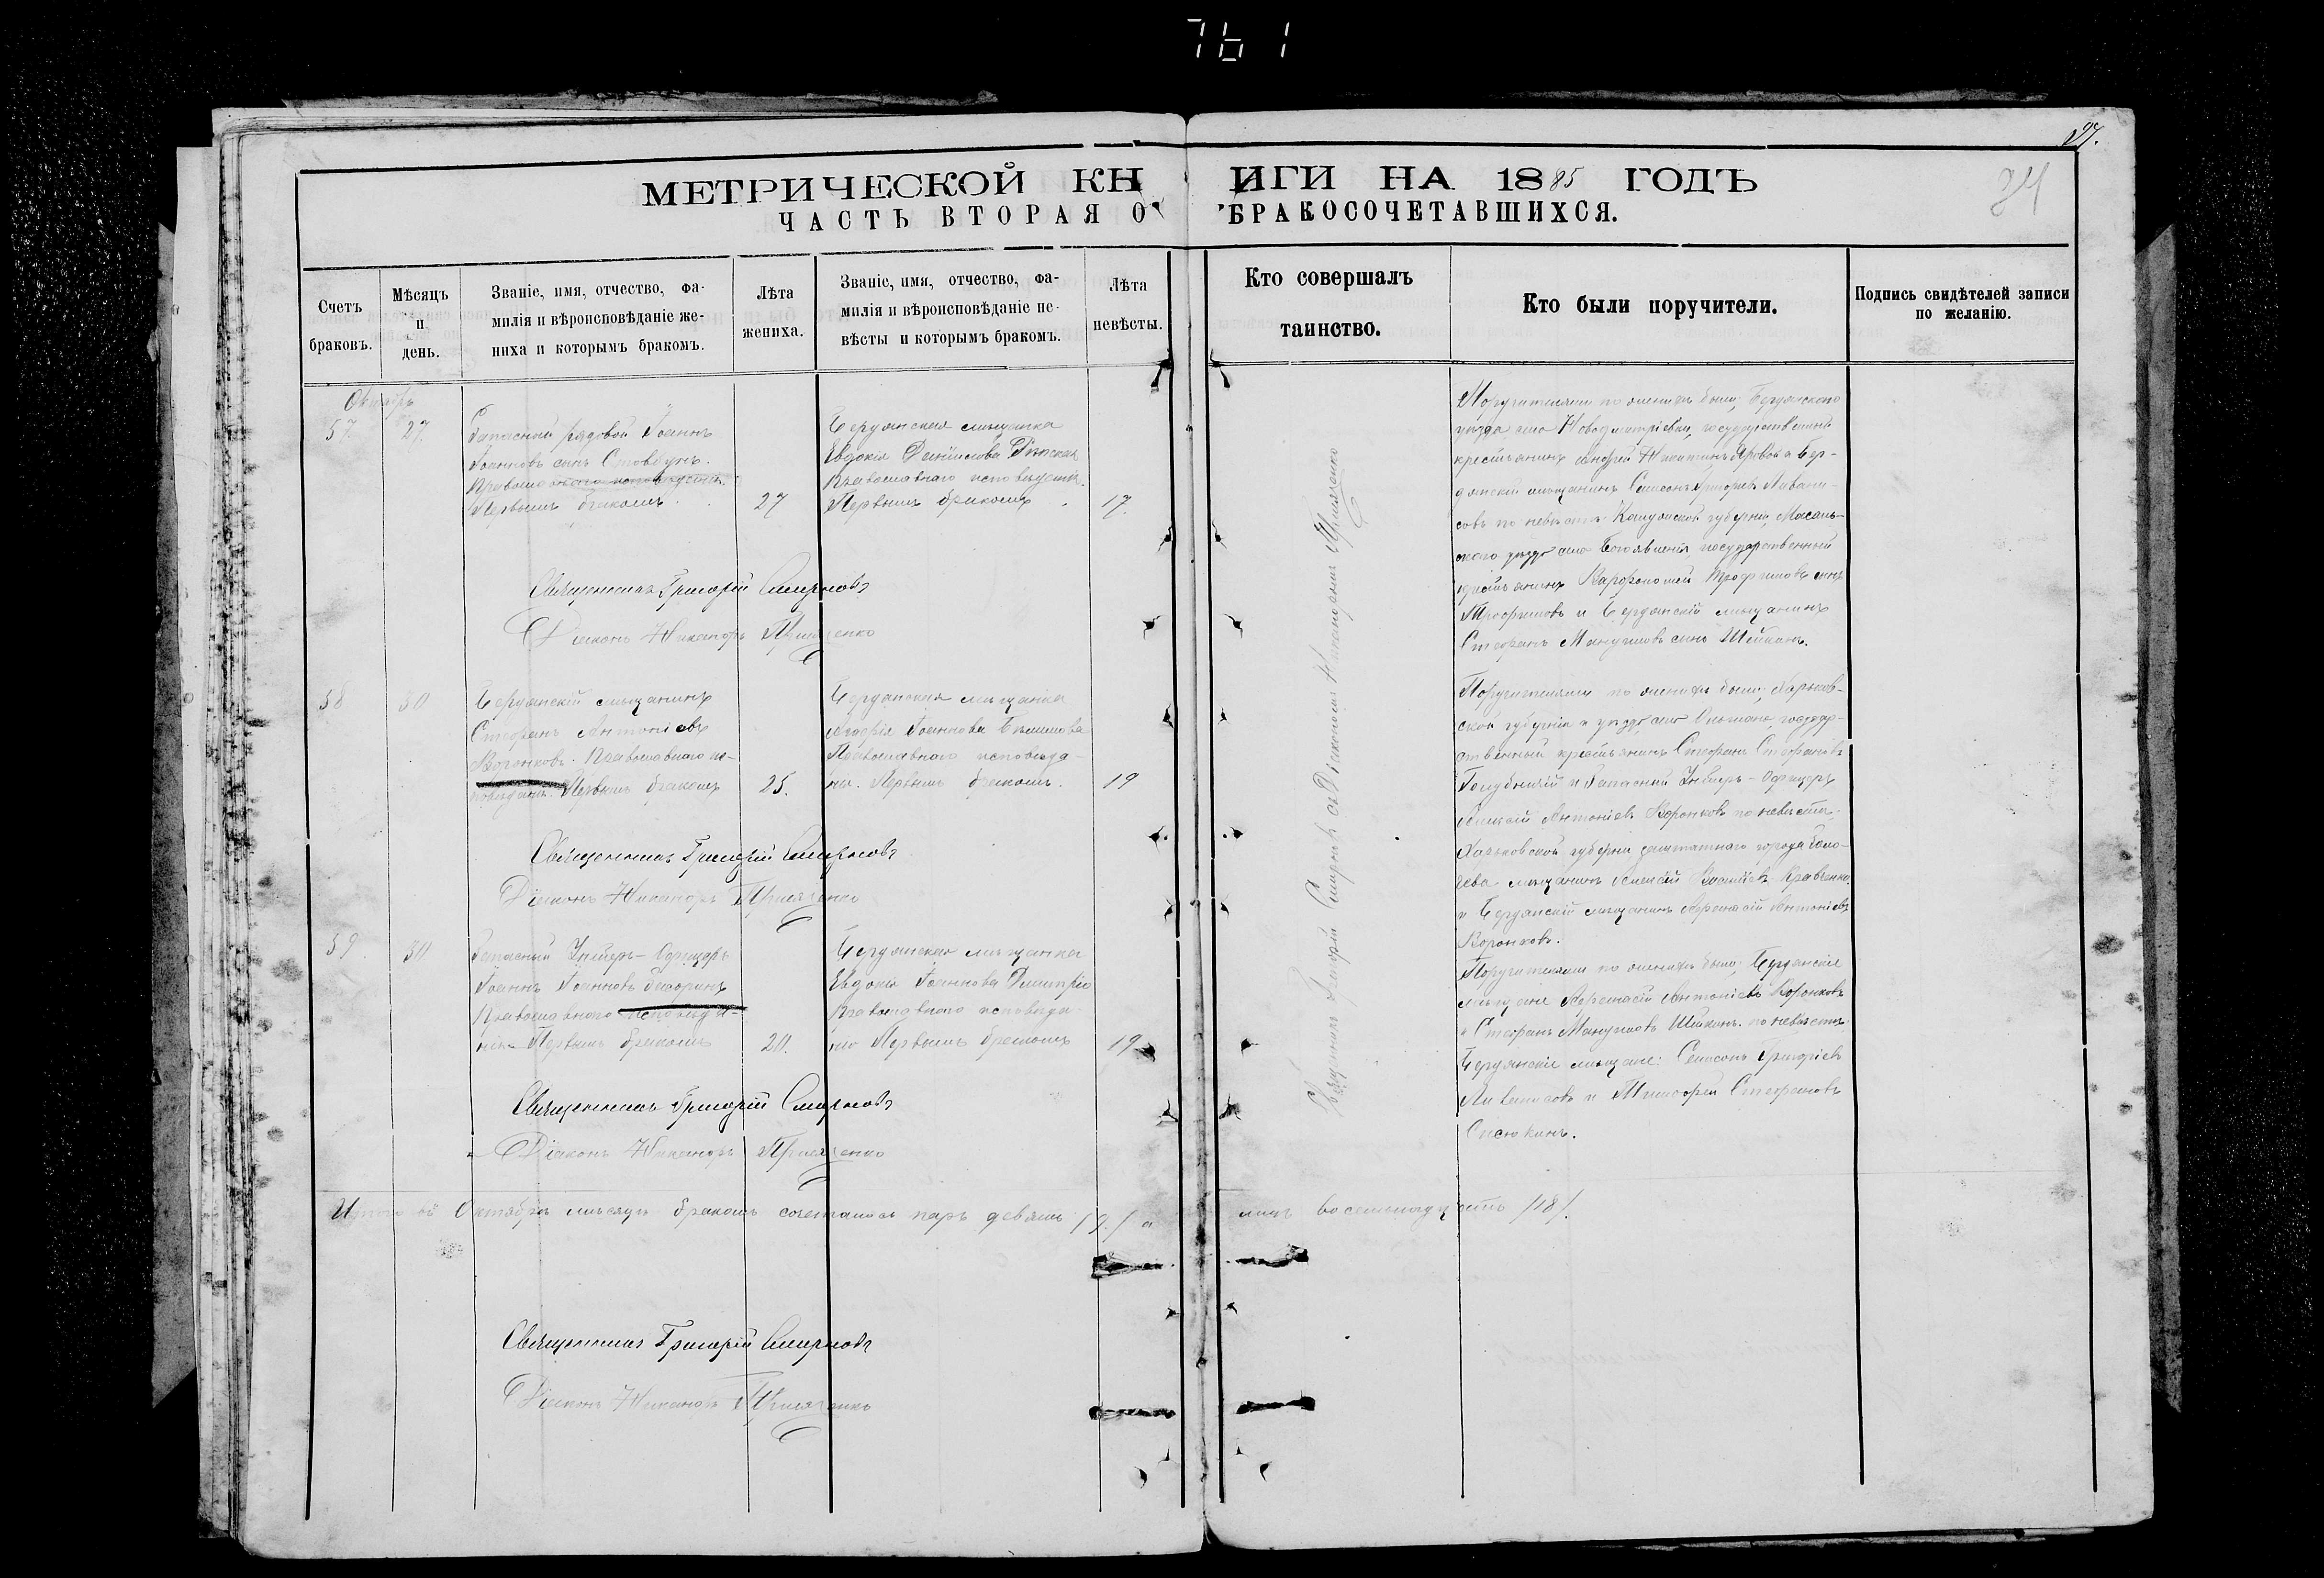 761
27.
34
МЕТРИЧЕСКОЙ КНИГИ НА 1885 ГОДЪ
ЧАСТЬ ВТОРАЯ О БРАКОСОЧЕТАВШИХСЯ.
Счетъ браковъ.
Мѣсяцъ и день.
Званіе, имя, отчество, фа-
милія и вѣроисповѣданіе же-
ниха и которымъ бракомъ.
Лѣта
жениха.
Званіе, имя, отчество, фа-
милія и вѣроисповѣданіе не-
вѣсты и которымъ бракомъ.
Лѣта
невѣсты.
Кто совершалъ
таинство.
Кто были поручители.
Подпись свидѣтелей записи
по желанію.
Октябрь
57. 27.
Запасный рядовой Іоаннъ
Іоанновъ сынъ Стовбунъ.
Православнаго исповѣданія.
Первымъ бракомъ.
27
Бердянская мѣщанка
Евдокія Даніилова
Православнаго исповѣданія.
Первымъ бракомъ.
17.
Поручителями по женихѣ были; Бердянскаго
уѣзда села Новодмитріевки, государственный
крестьянинъ Андрей Никитинъ Яровой и Бер-
дянскій мѣщанинъ Самсонъ Григорьевъ Ливани-
совъ по невѣстѣ Калужской губерніи, Масаль-
скаго уѣзда села Богоявленія государственный
крестьянинъ Варфоломей Трофимовъ сынъ
Трофимовъ и Бердянскій мѣщанинъ
Стефанъ Мануиловъ сынъ Шейкинъ.
Священникъ Григорій Смирновъ
Діаконъ Никаноръ
58 30
Бердянскій мѣщанинъ
Стефанъ Антоніевъ
Воронковъ. Православнаго ис-
повѣданія. Первымъ бракомъ
25.
Бердянская мѣщанка
Іоаннова
Православнаго исповѣда-
нія. Первымъ бракомъ.
19
Поручителями по женихѣ были; Харьков-
ской губерніи и уѣзда села Ольшана, государ-
ственный крестьянинъ Стефанъ Стефановъ
Голубничій и Запасный Унтеръ-Офицеръ
Алексій Антоніевъ Воронковъ по невѣстѣ;
Харьковской губерніи заштатнаго города Золо-
чева мѣщанинъ Алексій Василіевъ Кравченко
и Бердянскій мѣщанинъ Афанасій Антоніевъ
Воронковъ.
Священникъ Григорій Смирновъ
Діаконъ Никаноръ
59. 30
Запасный Унтеръ-Офицеръ
Іоаннъ Іоанновъ
Православнаго исповѣда-
нія Первымъ бракомъ
20.
Бердянская мѣщанка
Евдокія Іоаннова
Православнаго исповѣда-
нія Первымъ бракомъ
19
Поручителями по женихѣ были; Бердянскіе
мѣщане Афанасій Антоніевъ Воронковъ
и Стефанъ Мануиловъ Шейкинъ. по невѣстѣ
Бердянскіе мѣщане: Самсонъ Григоріевъ
Ливанисовъ и Тимофей Стефановъ
Сисюкинъ.
Священникъ Григорій Смирновъ
Діаконъ Никаноръ
Священникъ Григорій Смирновъ съ Діакономъ Никаноромъ
Итого въ Октябрѣ мѣсяцѣ бракомъ сочеталось паръ девять /9/ а лицъ восемнадцать /18/.
Священникъ Григорій Смирновъ
Діаконъ Никаноръ